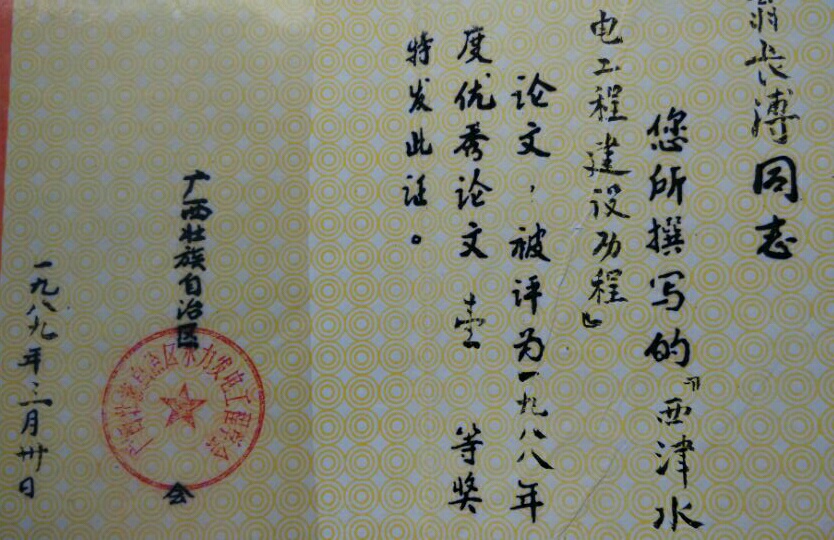 翁长溥同志
您所撰写的《西津水
电工程建设功程》
论文，被评为一九八八年
度优秀论文 壹 等奖
特发此证。
广西壮族自治区
会
广西壮族自治区水力发电工程学会
一九八九年三月卅日